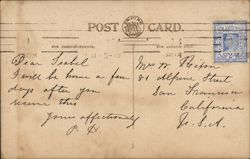 POST CARD.
FOR CORRESPONDENCE.
FOR ADDRESS ONLY.
Dear Isabel
I will be home a few
days after you
receive this
Yours affectionately
P. H.
Mrs W
81 Alpine Street
San Francisco
California
U.S.A.